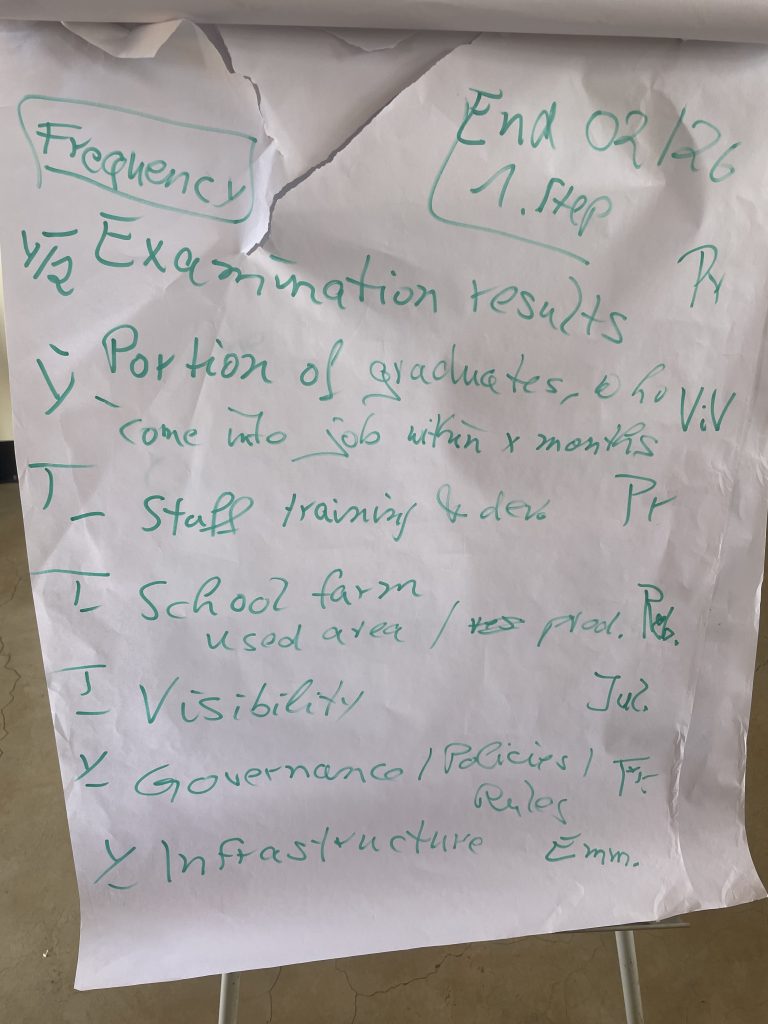 Frequency
End 02/26
1. Step
Y/2 Examination results Pr
Y Portion of graduates, who ViV
come into job within x months
T Staff training & dev. Pr
T School farm
used area / prod. Reb.
T Visibility Jul.
Y Governance / Policies /
Rules
Y Infrastructure Emm.